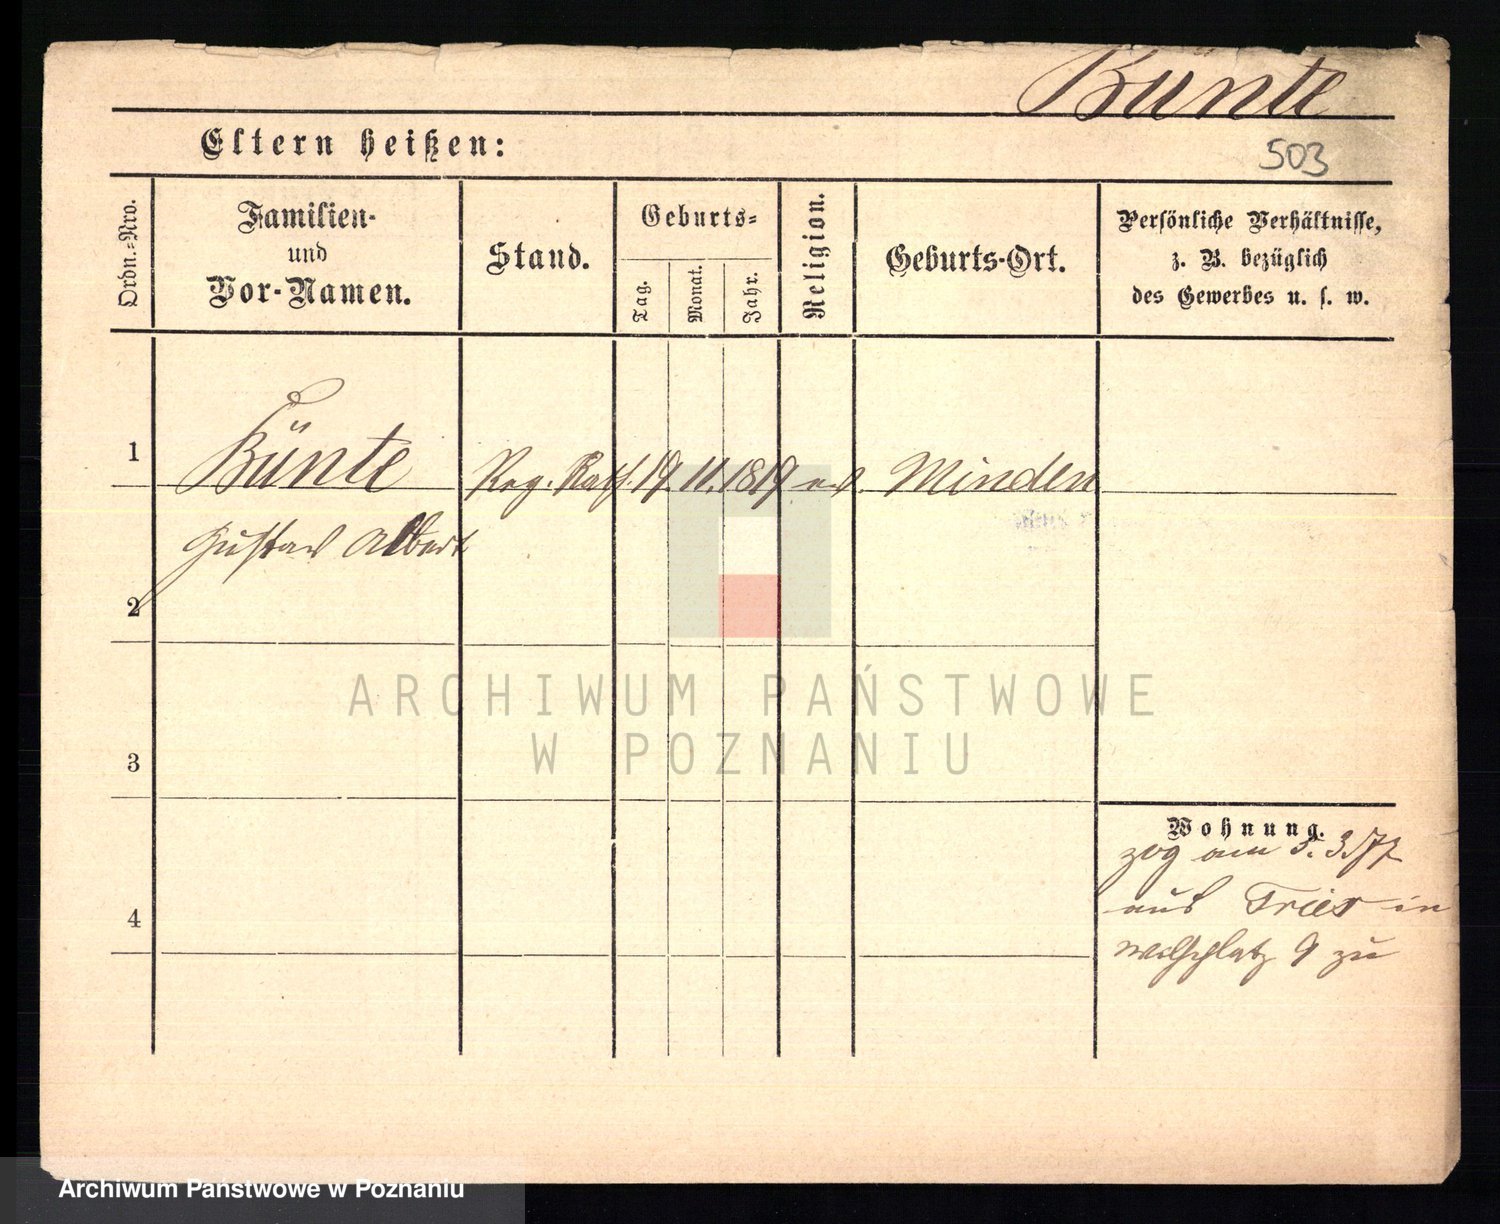 Bünte
503
Eltern heißen:
Ordn.-Nro.
Familien-
und
Vor-Namen.
Stand.
Geburts-
Tag.
Monat.
Jahr.
Religion.
Geburts-Ort.
Persönliche Verhältnisse,
z. B. bezüglich
des Gewerbes u. s. w.
1
Bünte
Reg. Rath. 19. 11. 1819 ev. Minden
Gustav Albert
2
ARCHIWUM PAŃSTWOWE
W POZNANIU
3
Wohnung.
zog am 5. 3.77
aus Trier in
4
9 zu
Archiwum Państwowe w Poznaniu